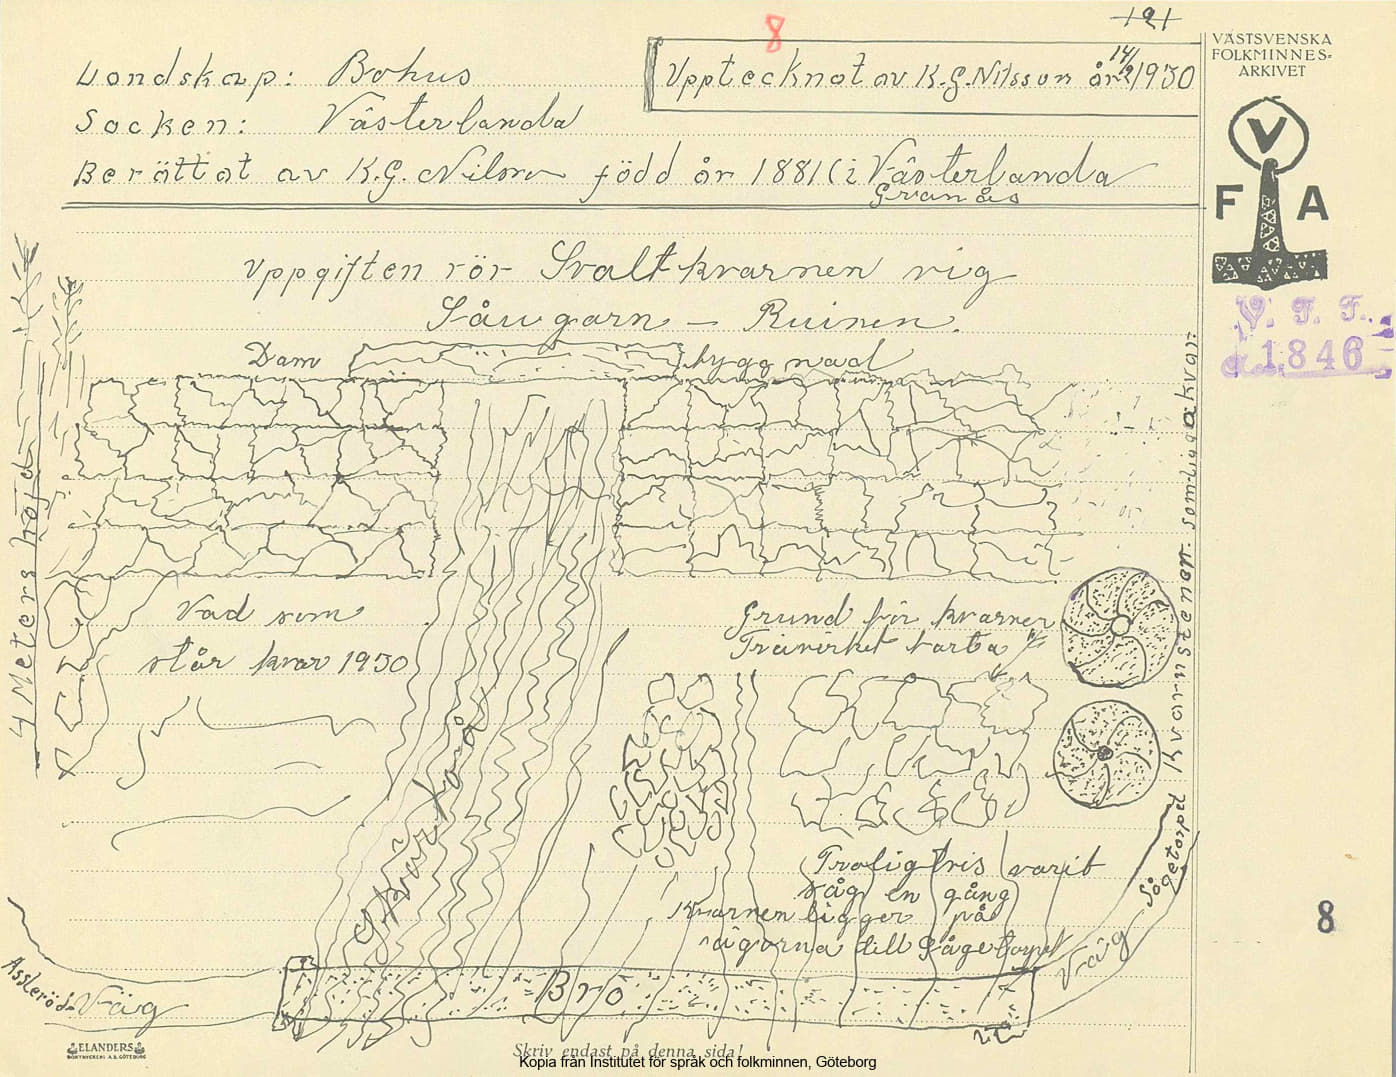 121
8
VÄSTSVENSKA
FOLKMINNES-
ARKIVET
V
F A
V. F. F.
1846
Landskap: Bohus
Upptecknat av K.G. Nilsson år 14/9 1930
Socken: Västerlanda
Berättat av K.G. Nilson född år 1881 i Västerlanda
Granås
Uppgiften rör Svaltkvarnen vig
Såugarn — Ruinen.
Dam byggnad
4 Meters höjd
Vad som
står kvar 1930
Grund för kvarnen
Trävirket borta
Kvarnstenen som lig a kvar
Skvärkorå
Troligtvis varit
såg en gång
Kvarnen ligger på
ägorna till Sågetorpet
Sågetorpet
Väg
Assleröd Väg
Bro
8
ELANDERS
BOKTRYCKERI A.B. GÖTEBORG
Skriv endast på denna sida!
Kopia från Institutet för språk och folkminnen, Göteborg